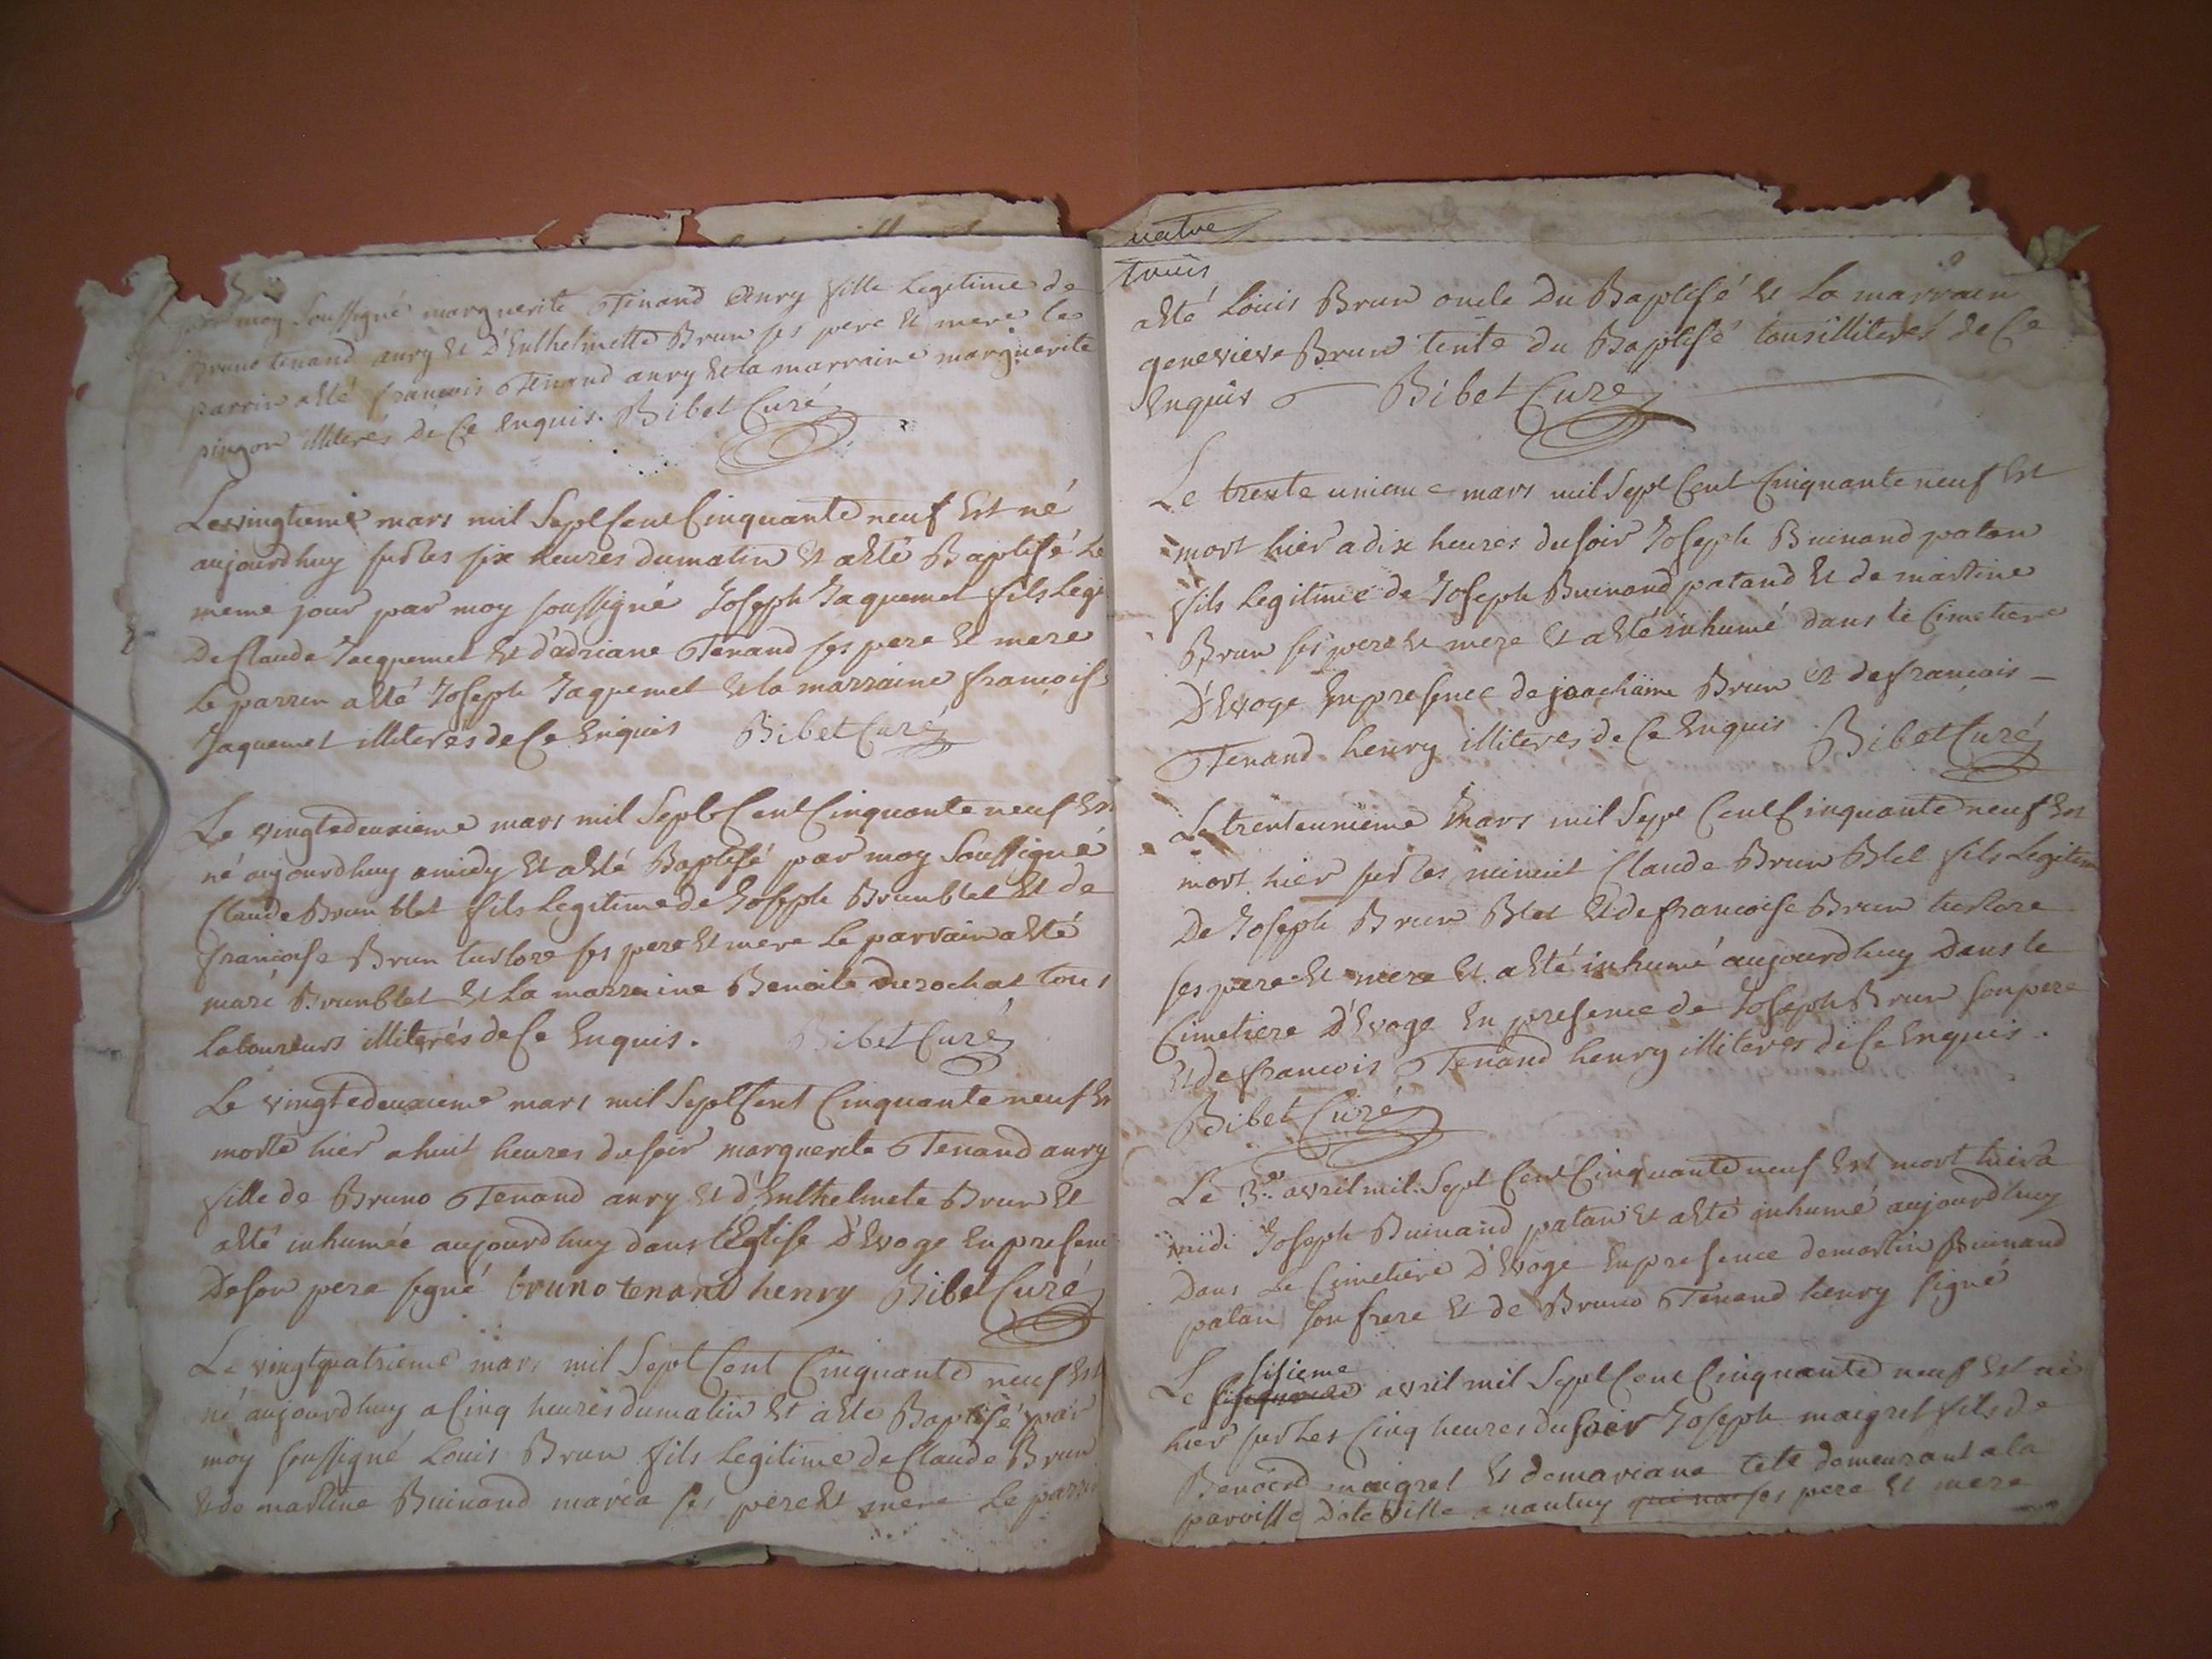 par moy soussigné marguerite Tenand anry fille legitime de
Bruno tenand anry et d'Enthelmette Brun ses pere et mere le
parrin a esté francois Tenand anry et la marraine marguerite
pingon illiterés de ce enquis. Bibet Curé
Le vingtieme mars mil Sept Cent Cinquante neuf Est né
aujourdhuy sur les six heures du matin et a esté Baptisé le
meme jour par moy soussigné Joseph Jaquemet fils legi
De Claude Jacquemet et d'adriane Tenand ses pere et mere
Le parrin a esté Joseph Jaquemet et la marraine francois
Jaquemet illiterés de Ce Enquis Bibet Curé
Le vingtedeuxieme mars mil Sept Cent Cinquante neuf Est
né aujourdhuy a midy et a esté Baptisé par moy Soussigné
Claude Brun blet fils legitime de Joseph Brunblet et de
francoise Brun turlore ses pere et mere le parrain a esté
mare Brunblet et la marraine Benoite durochat tous
Laboureurs illiterés de Ce Enquis. Bibet Curé
Le vingtedeuxieme mars mil Sept Cent Cinquante neuf Es
morte hier a huit heures du soir marguerite Tenand anry
fille de Bruno Tenand anry et d'Enthelmete Brun et
a esté inhumée aujourdhuy dans l'Eglise D'Evoge En presenc
De son pere signé bruno tenand henry Bibet Curé
Le vingtquatrieme mars mil Sept Cent Cinquante neuf Est
né aujourdhuy a Cinq heures du matin et a esté Baptisé par
moy soussigné Louis Brun fils legitime de Claude Brun
et de martine Buinand maria ses pere et mere Le parri
uatre
trois
a esté Louis Brun oncle Du Baptisé et La marrain
genevieve Brun tente du Baptisé tous illiterés de Ce
Enquis Bibet Curé
Le trente unieme mars mil Sept Cent Cinquante neuf Est
mort hier a dix heures du soir Joseph Buinand patan
fils legitime de Joseph Buinand patand et de martine
Brun ses pere et mere et a esté inhumé dans le Cimetiere
D'Evoge En presence de joachaime Brun et de francois
Tenand henry illiteres de Ce Enquis Bibet Curé
Le trenteunieme mars mil Sept Cent Cinquante neuf Est
mort hier sur les minuit Claude Brun Blet fils legitim
De Joseph Brun Blet et de francoise Brun turlore
ses pere et mere et a esté inhumé aujourdhuy Dans le
Cimetiere D'Evoge En presence de Joseph Brun son pere
et de francois Tenand henry illiteres de Ce Enquis.
Bibet Curé
Le 3e avril mil Sept Cent Cinquante neuf Est mort hier a
midi Joseph Buinand patan et a esté inhumé aujourdhuy
Dans Le Cimetiere D'Evoge En presence de martin Buinand
patan son frere et de Bruno Tenand henry signé
Le sisieme avril mil Sept Cent Cinquante neuf Est né
hier sur Les Cinq heures du soir Joseph maigret fils de
Benoird maigret et de mariane tete demeurant a la
paroisse Dole ville a nantuy ses pere et mere